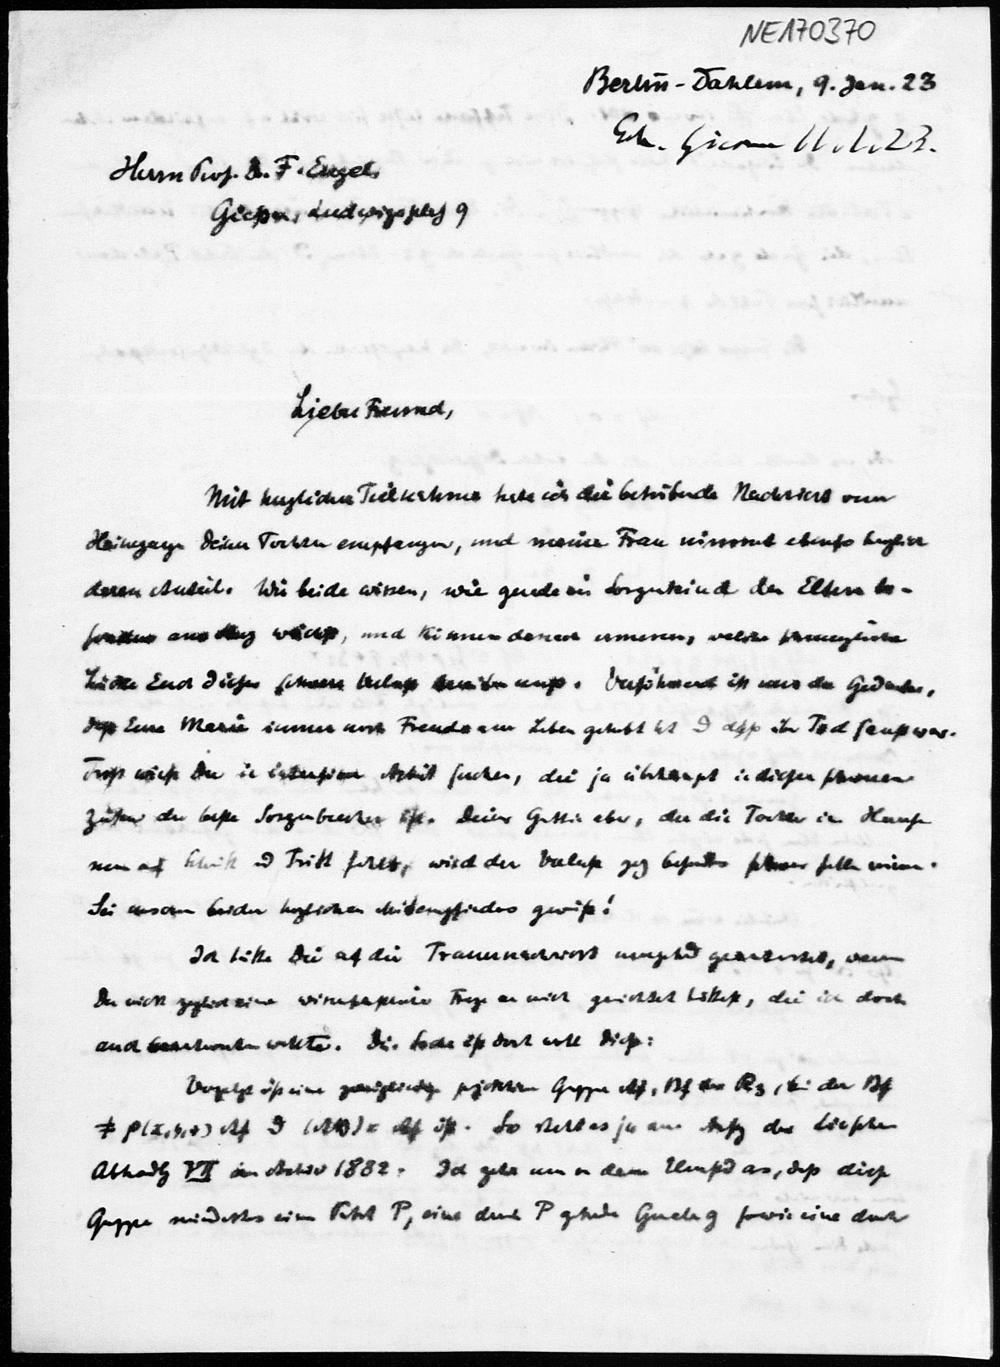 NE170370
Berlin-Dahlem, 9. Jan. 23
Erh. Giessen 11.1.23.
Herrn Prof. Dr. F. Engel,
Giessen, Ludwigsplatz 9
Lieber Freund,
Mit herzlicher Teilnahme habe ich die betrübende Nachricht vom
Heimgange Deiner Tochter empfangen, und meine Frau nimmt ebenso herzlich
daran Anteil. Wir beide wissen, wie gerade ein Sorgenkind den Eltern be-
sonders ans Herz wächst, und können daraus ermessen, welche schmerzliche
Lücke Euch dieser schwere Verlust muss. Versöhnend ist nur der Gedanke,
dass Eure Marie immer noch Freude am Leben gehabt hat u dass ihr Tod sanft war.
Trost wirst Du in intensiver Arbeit suchen, die ja überhaupt in diesen schweren
Zeiten der beste Sorgenbrecher ist. Deiner Gattin aber, der die Tochter im Hause
nun auf Schritt und Tritt fehlt, wird der Verlust ganz besonders schwer fallen
Sei unserer beider herzlichen Mitempfindens gewiß!
Ich hätte Dir auf die Trauernachricht umgehend geantwortet, wenn
Du nicht zugleich eine wissenschaftliche Frage an mich gerichtet hättest, die ich doch
auch beantworten wollte. Die Sache ist doch wohl diese:
Vorgelegt ist eine zweigliedrige projektive Gruppe Af, Bf des R₃, bei der Bf
≠ ρ(x,y,z) Af u (AB) = Af ist. So steht es ja am Anfang der Lieschen
Abhandlg VII im Archiv 1882. Ich gehe nun von dem Umstand aus, dass diese
Gruppe mindestens einen Punkt P, eine durch P gehende Gerade g sowie eine durch